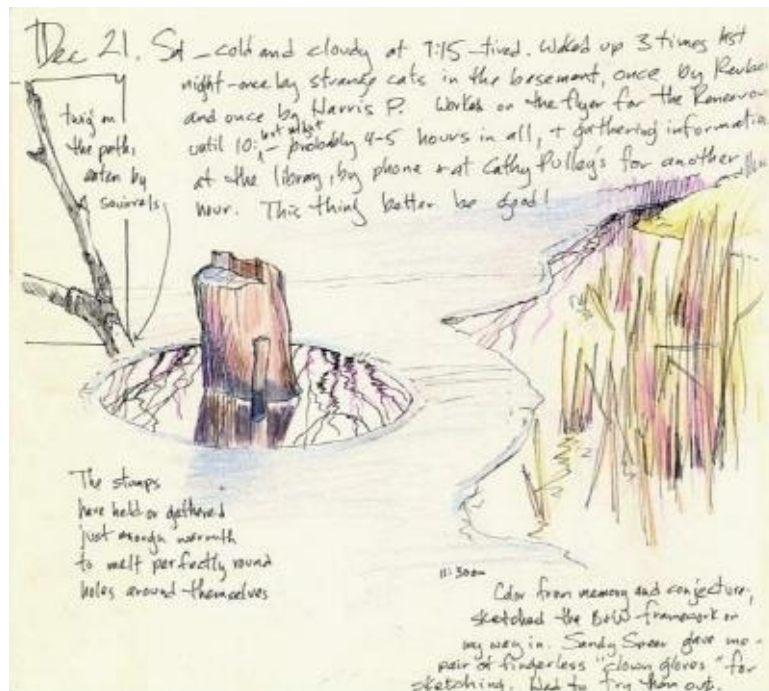 Dec 21. Sat - cold and cloudy at 7:15 - tired. Waked up 3 times last
night - once by strange cats in the basement, once by Reuben
and once by Harris P. Worked on the flyer for the
until 10: last night - probably 4-5 hours in all, + gathering information
at the library, by phone + at Cathy Pulley's for another
hour. This thing better be good!
twig on
the path,
eaten by
squirrels
The stumps
have held or gathered
just enough warmth
to melt perfectly round
holes around themselves
11:30am
Color from memory and conjecture,
sketched the B+W framework on
my way in. Sandy Speer gave me
pair of fingerless "clown gloves" for
sketching. Had to try them out.